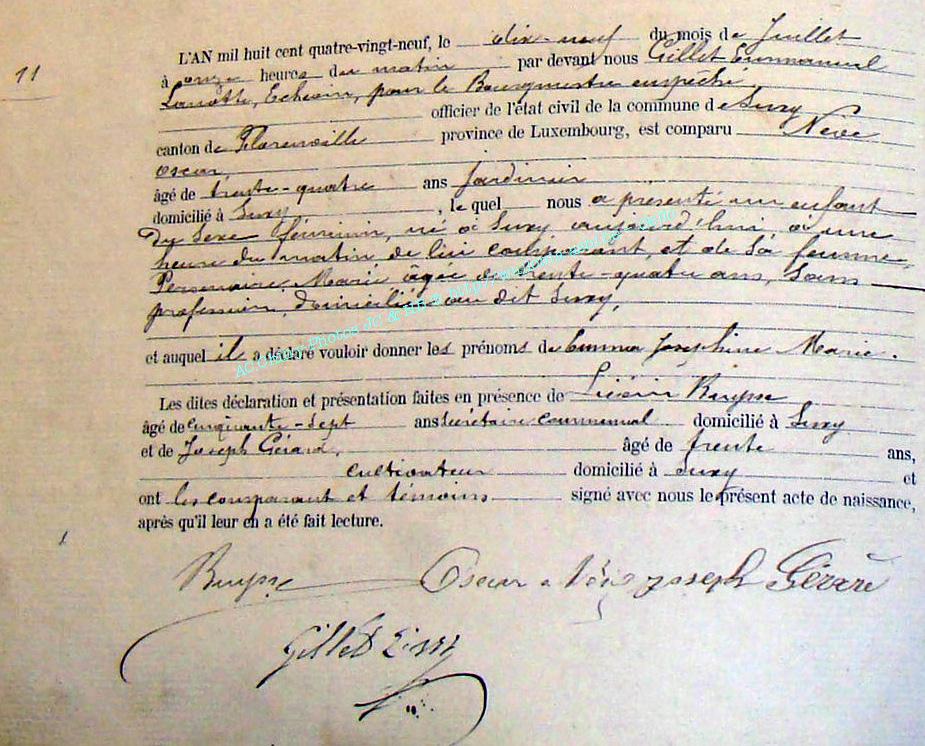 11
L'AN mil huit cent quatre-vingt-neuf, le dix-neuf du mois de Juillet
à onze heures du matin par devant nous Gillet Emmanuel
Echevin, pour le Bourgmestre empêché
officier de l'état civil de la commune de Suxy
canton de Florenville province de Luxembourg, est comparu Nève
Oscar,
âgé de trente-quatre ans Jardinier
domicilié à Suxy, le quel nous a présenté un enfant
du sexe féminin, né à Suxy aujourd'hui, à une
heure du matin de lui comparant, et de sa femme,
Marie âgée de trente-quatre ans, sans
profession, domiciliée au dit Suxy,
et auquel il a déclaré vouloir donner les prénoms de Emma Joséphine Marie.
Les dites déclaration et présentation faites en présence de
âgé de cinquante-sept ans secrétaire communal domicilié à Suxy
et de Joseph Gérard, âgé de trente ans,
cultivateur domicilié à Suxy et
ont les comparant et témoins signé avec nous le présent acte de naissance,
après qu'il leur en a été fait lecture.
Oscar Joseph Gérard
Gillet